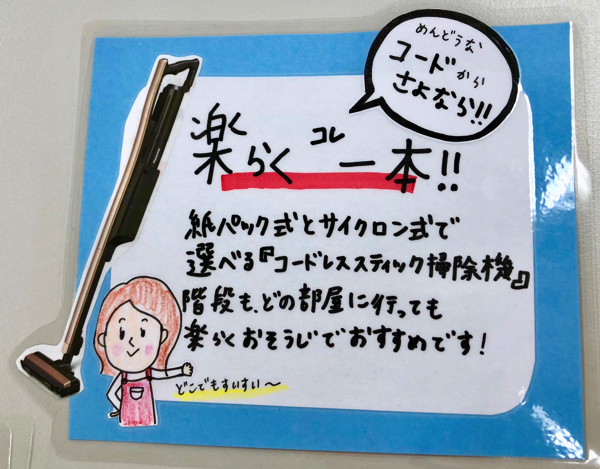 めんどうな
コードから
さよなら!!
楽らくコレ一本!!
紙パック式とサイクロン式で
選べる『コードレススティック掃除機』
階段も、どの部屋に行っても
楽らくおそうじでおすすめです!
どこでもすいすい〜